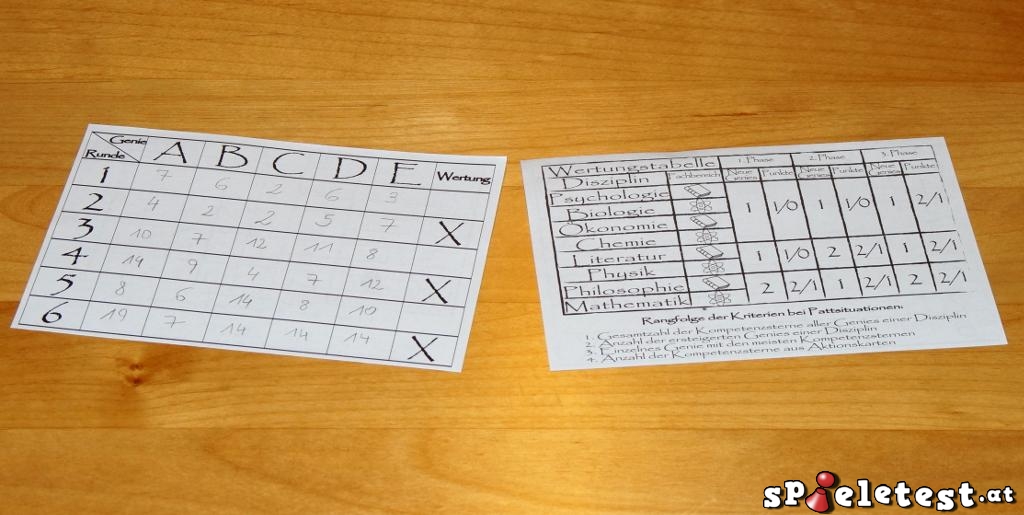 Genie A B C D E Wertung
Runde
1 7 6 2 6 3
2 4 2 2 5 7 X
3 10 7 12 11 8
4 14 9 4 7 12 X
5 8 6 14 8 10
6 19 7 14 14 14 X
Wertungstabelle 1. Phase 2. Phase 3. Phase
Disziplin Fachbereich Neue Genies Punkte Neue Genies Punkte Neue Genies Punkte
Psychologie
Biologie 1 1/0 1 1/0 1 2/1
Ökonomie
Chemie
Literatur 1 1/0 2 2/1 1 2/1
Physik
Philosophie 2 2/1 1 2/1 2 2/1
Mathematik
Rangfolge der Kriterien bei Pattsituationen:
1. Gesamtzahl der Kompetenzsterne aller Genies einer Disziplin
2. Anzahl der ersteigerten Genies einer Disziplin
3. Einzelnes Genie mit den meisten Kompetenzsternen
4. Anzahl der Kompetenzsterne aus Aktionskarten
spieletest.at